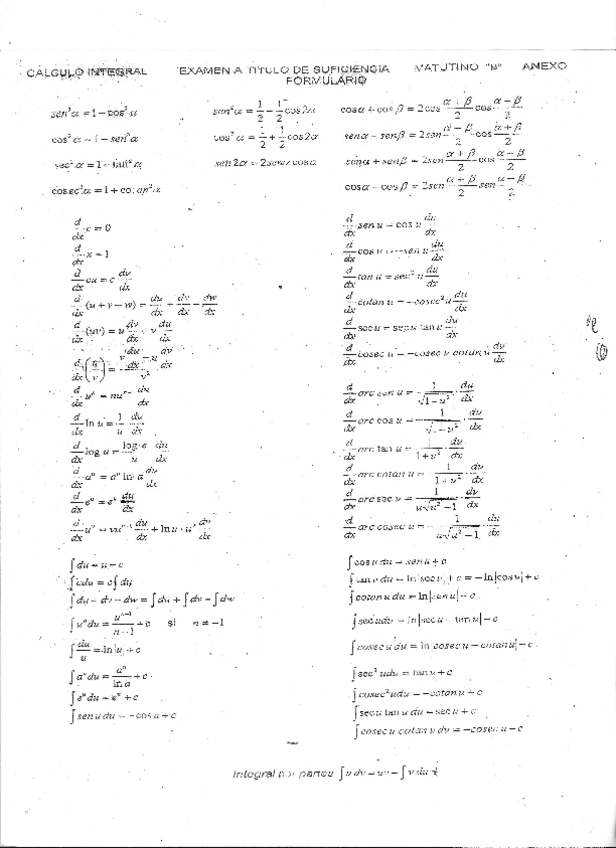 CALCULO INTEGRAL EXAMEN A TITULO DE SUFICIENCIA MATUTINO "M" ANEXO
FORMULARIO
sen²α = 1 − cos²α
cos²α − 1 − sen²α
sec²α = 1 − tan²α
cosec²α = 1 + cotan²α
sen²α = 1/2 − 1/2 cos2α
cos²α = 1/2 + 1/2 cos2α
sen2α = 2senα cosα
cosα + cosβ = 2cos (α + β)/2 cos (α − β)/2
senα − senβ = 2sen (α − β)/2 cos (α + β)/2
senα + senβ = 2sen (α + β)/2 cos (α − β)/2
cosα − cosβ = 2sen (α + β)/2 sen (α − β)/2
d/dx c = 0
d/dx x − 1
d/dx cu = c dv/dx
d/dx (u + v − w) = du/dx + dv/dx − dw/dx
d/dx (uv) = u dv/dx + v du/dx
d/dx (u/v) =
d/dx ln u = 1/u du/dx
d/dx log u = log e/u du/dx
d/dx aᵘ = aᵘ ln a du/dx
d/dx eᵘ = eᵘ du/dx
d/dx sen u = cos u du/dx
d/dx cos u = −sen u du/dx
d/dx tan u = sec² u du/dx
d/dx cotan u = −cosec² u du/dx
d/dx sec u = sec u tan u du/dx
d/dx cosec u = −cosec u cotan u dv/dx
d/dx arc sen u = 1/√(1−u²) · du/dx
d/dx arc cos u =
d/dx arc tan u = 1/(1+u²) · du/dx
d/dx arc cotan u = − 1/(1+u²) · dv/dx
d/dx arc sec u = 1/(u√(u²−1)) · du/dx
d/dx arc cosec u = − 1/(u√(u²−1)) · du/dx
∫ du = u − c
∫ cdu = c∫ du
∫ du − dv − dw = ∫ du + ∫ dv − ∫ dw
si n ≠ −1
∫ du/u = ln|u| + c
∫ aᵘ du = aᵘ/ln a + c
∫ eᵘ du = eᵘ + c
∫ sen u du = −cos u + c
∫ cos u du = sen u + c
∫ tan u du = ln|sec u| + c = −ln|cos u| + c
∫ cotan u du = ln|sen u| − c
∫ sec udu = ln|sec u − tan u| − c
∫ cosec u du = ln|cosec u − cotan u| − c
∫ sec² udu = tan u + c
∫ cosec² udu = −cotan u + c
∫ sec u tan u du = sec u + c
∫ cosec u cotan u dv = −cosec u − c
Integral por partes ∫ u dv = uv − ∫ v du